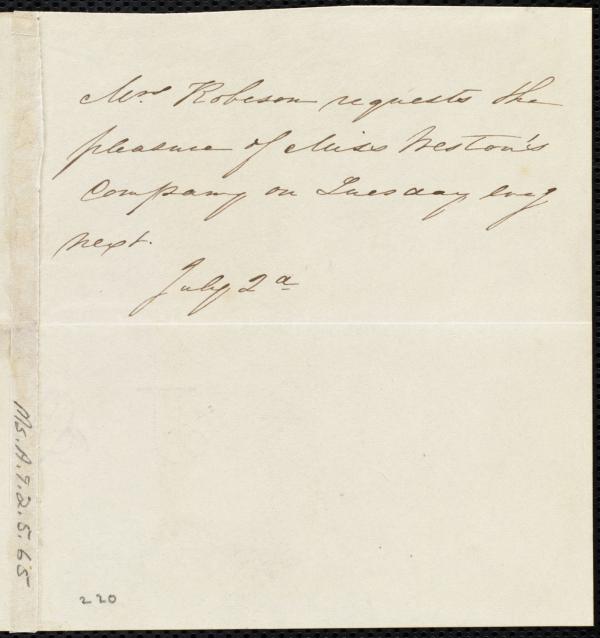 Mrs Robeson requests the
pleasure of Miss Weston's
Company on Tuesday evg
next.
July 2d
Ms.A.9.2.5.65
220